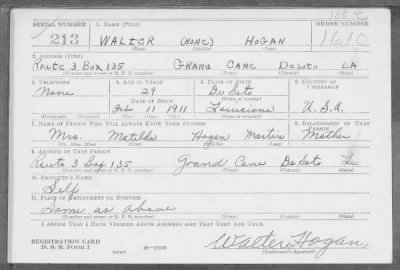 108 C
SERIAL NUMBER 1. NAME (Print) ORDER NUMBER
213 WALTER (NONE) HOGAN 1610
(First) (Middle) (Last)
2. ADDRESS (Print)
Route 3 Box 135 GRAND CANE DESOTO LA
(Number and street or R. F. D. number) (Town) (County) (State)
3. TELEPHONE 4. AGE IN YEARS 5. PLACE OF BIRTH 6. COUNTRY OF CITIZENSHIP
None 29 De Soto
DATE OF BIRTH (Town or county)
Feb 11 1911 Louisiana U.S.A.
(Exchange) (Number) (Mo.) (Day) (Yr.) (State or country)
7. NAME OF PERSON WHO WILL ALWAYS KNOW YOUR ADDRESS 8. RELATIONSHIP OF THAT PERSON
Mrs. Matilda Hogan Martin Mother
(Mr., Mrs., Miss) (First) (Middle) (Last)
9. ADDRESS OF THAT PERSON
Route 3 Box 135 Grand Cane De Soto La
(Number and street or R. F. D. number) (Town) (County) (State)
10. EMPLOYER'S NAME
Self
11. PLACE OF EMPLOYMENT OR BUSINESS
Same as above
(Number and street or R. F. D. number) (Town) (County) (State)
I AFFIRM THAT I HAVE VERIFIED ABOVE ANSWERS AND THAT THEY ARE TRUE.
REGISTRATION CARD
D. S. S. Form 1 (over) 16-17105 Walter Hogan
(Registrant's signature)